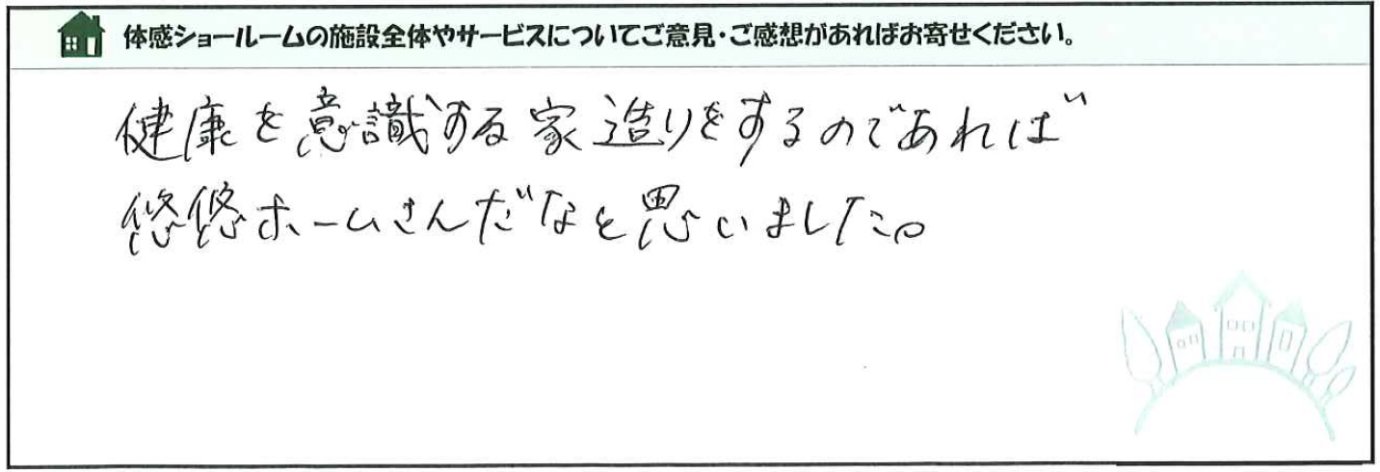 体感ショールームの施設全体やサービスについてご意見・ご感想があればお寄せください。
健康を意識する家造りをするのであれば
悠悠ホームさんだなと思いました。